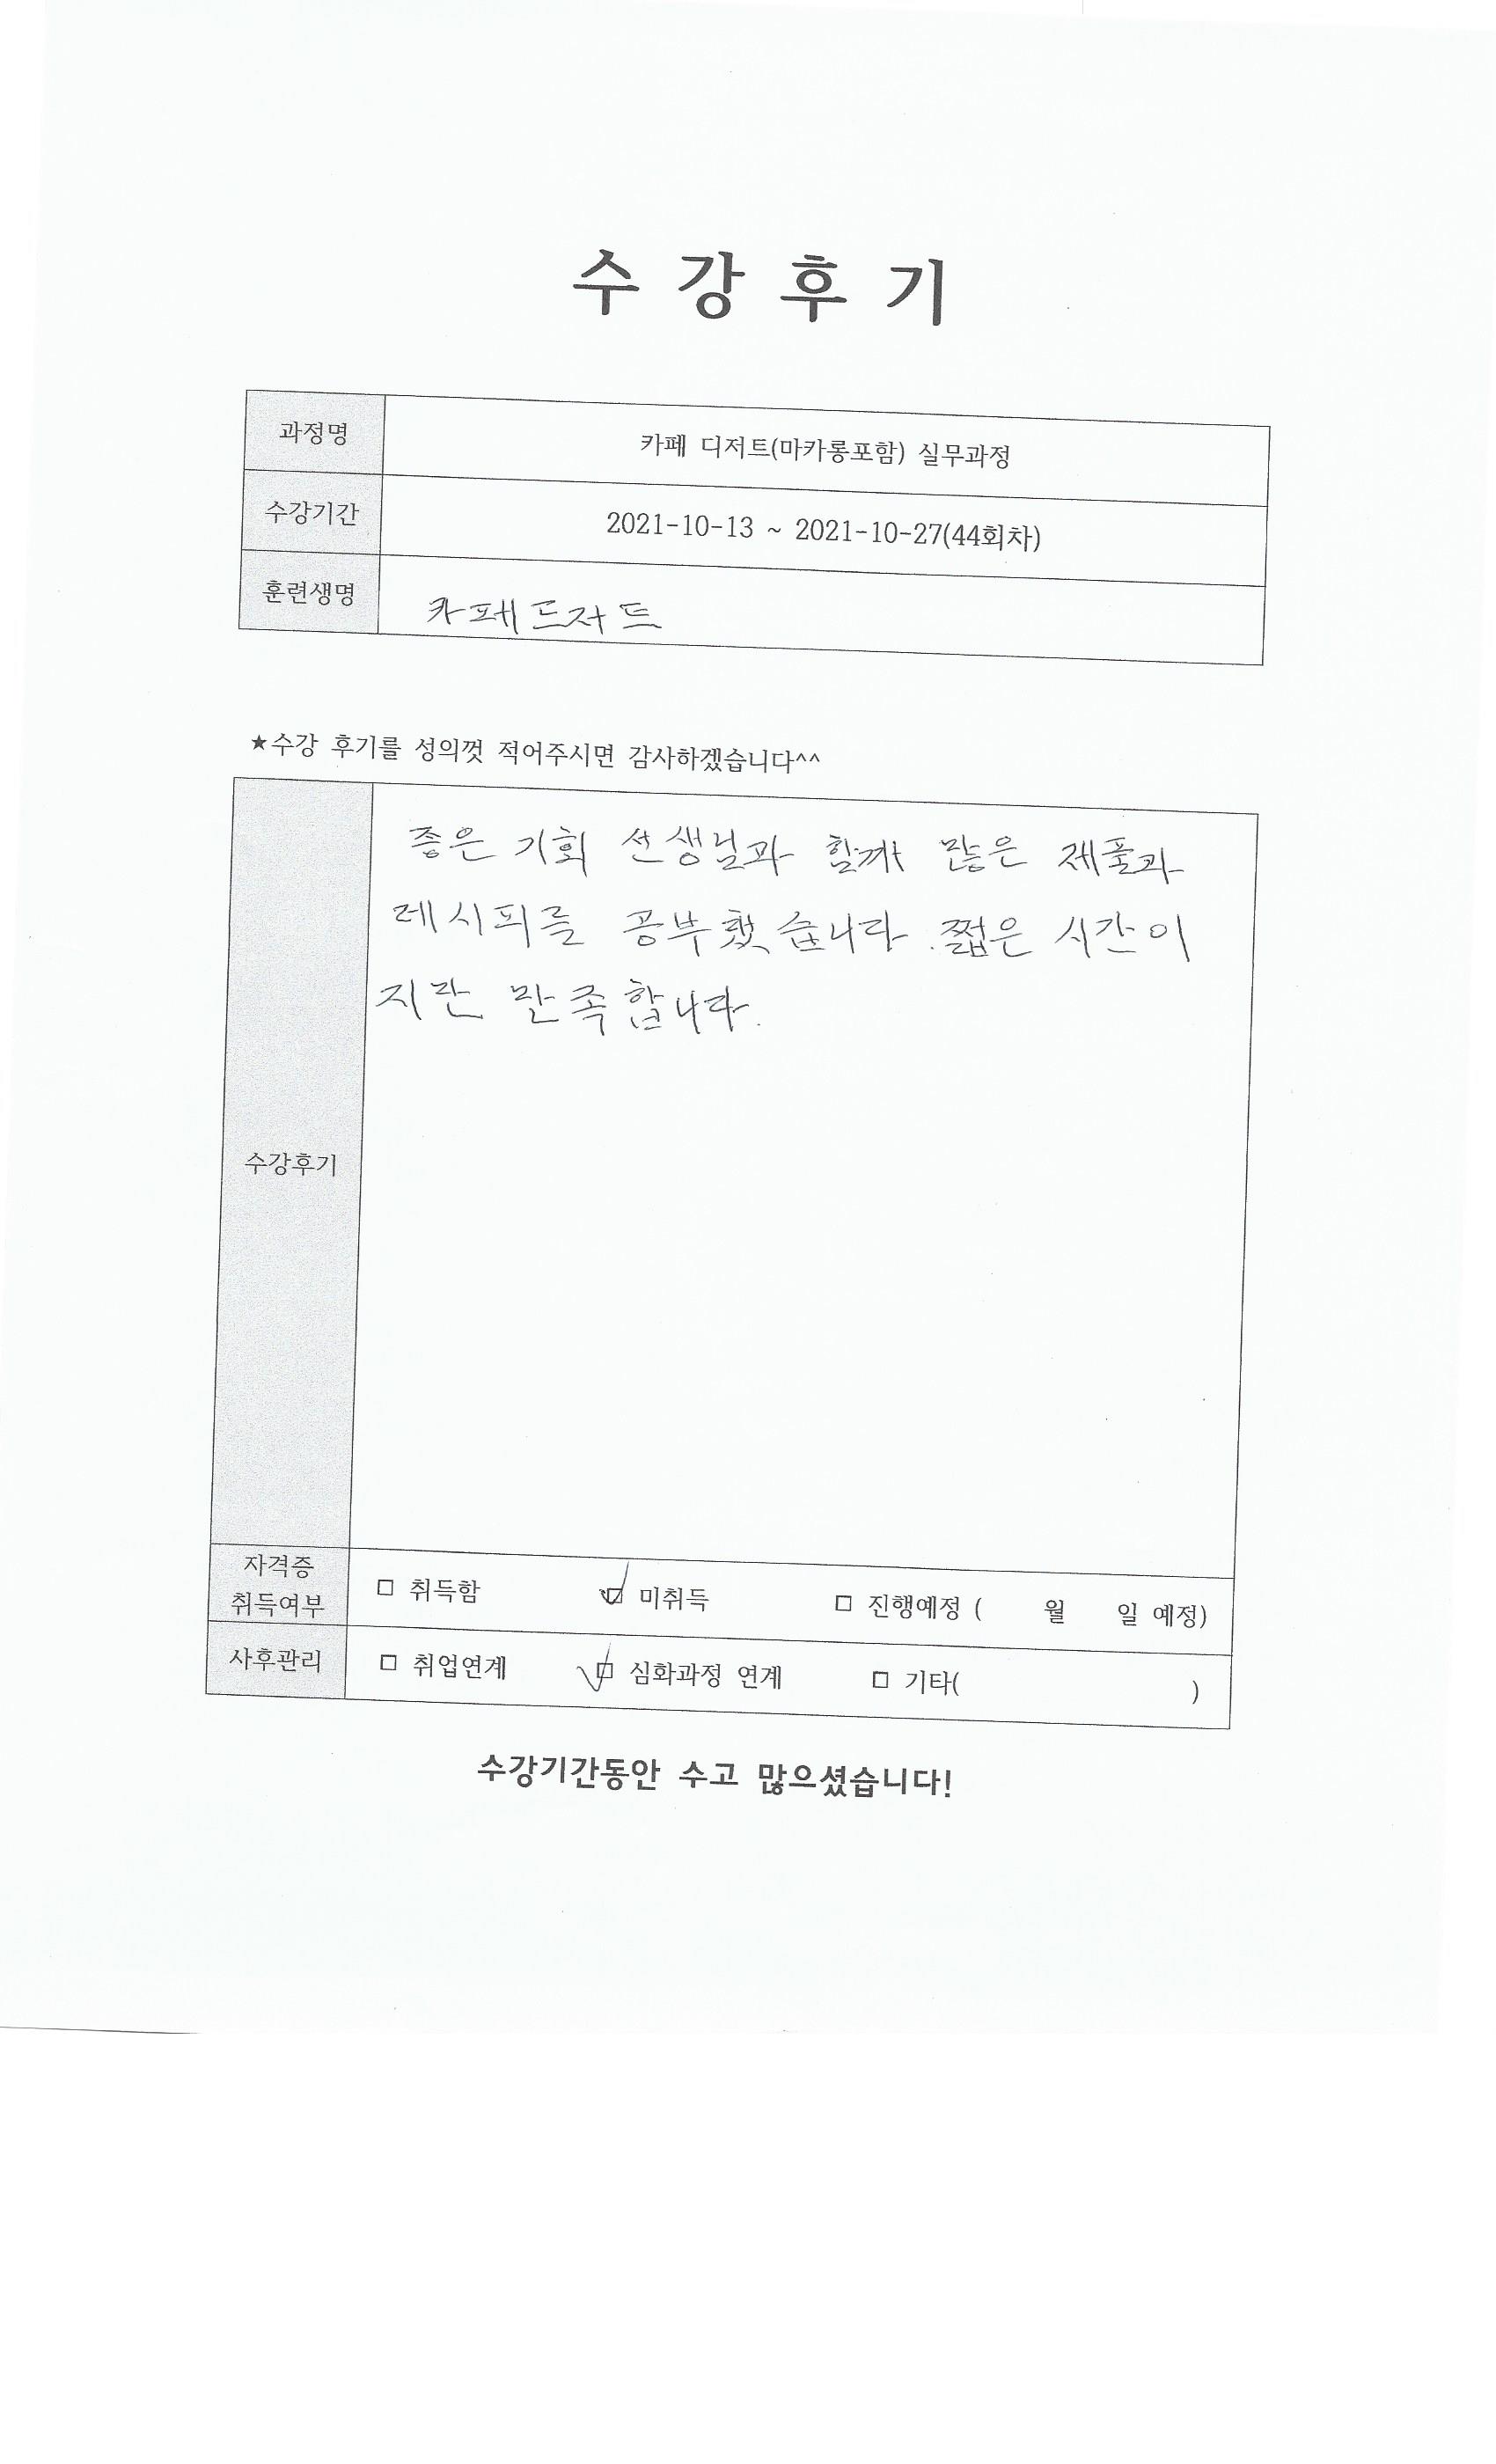 수 강 후 기
과정명 카페 디저트(마카롱포함) 실무과정
수강기간 2021-10-13 ~ 2021-10-27(44회차)
훈련생명 카페드저트
★수강 후기를 성의껏 적어주시면 감사하겠습니다^^
좋은 기회 선생님과 함께 많은 제품과
레시피를 공부했습니다. 짧은 시간이
지만 만족합니다.
수강후기
자격증
취득여부 □ 취득함 ☑ 미취득 □ 진행예정 ( 월 일 예정)
사후관리 □ 취업연계 ☑ 심화과정 연계 □ 기타( )
수강기간동안 수고 많으셨습니다!